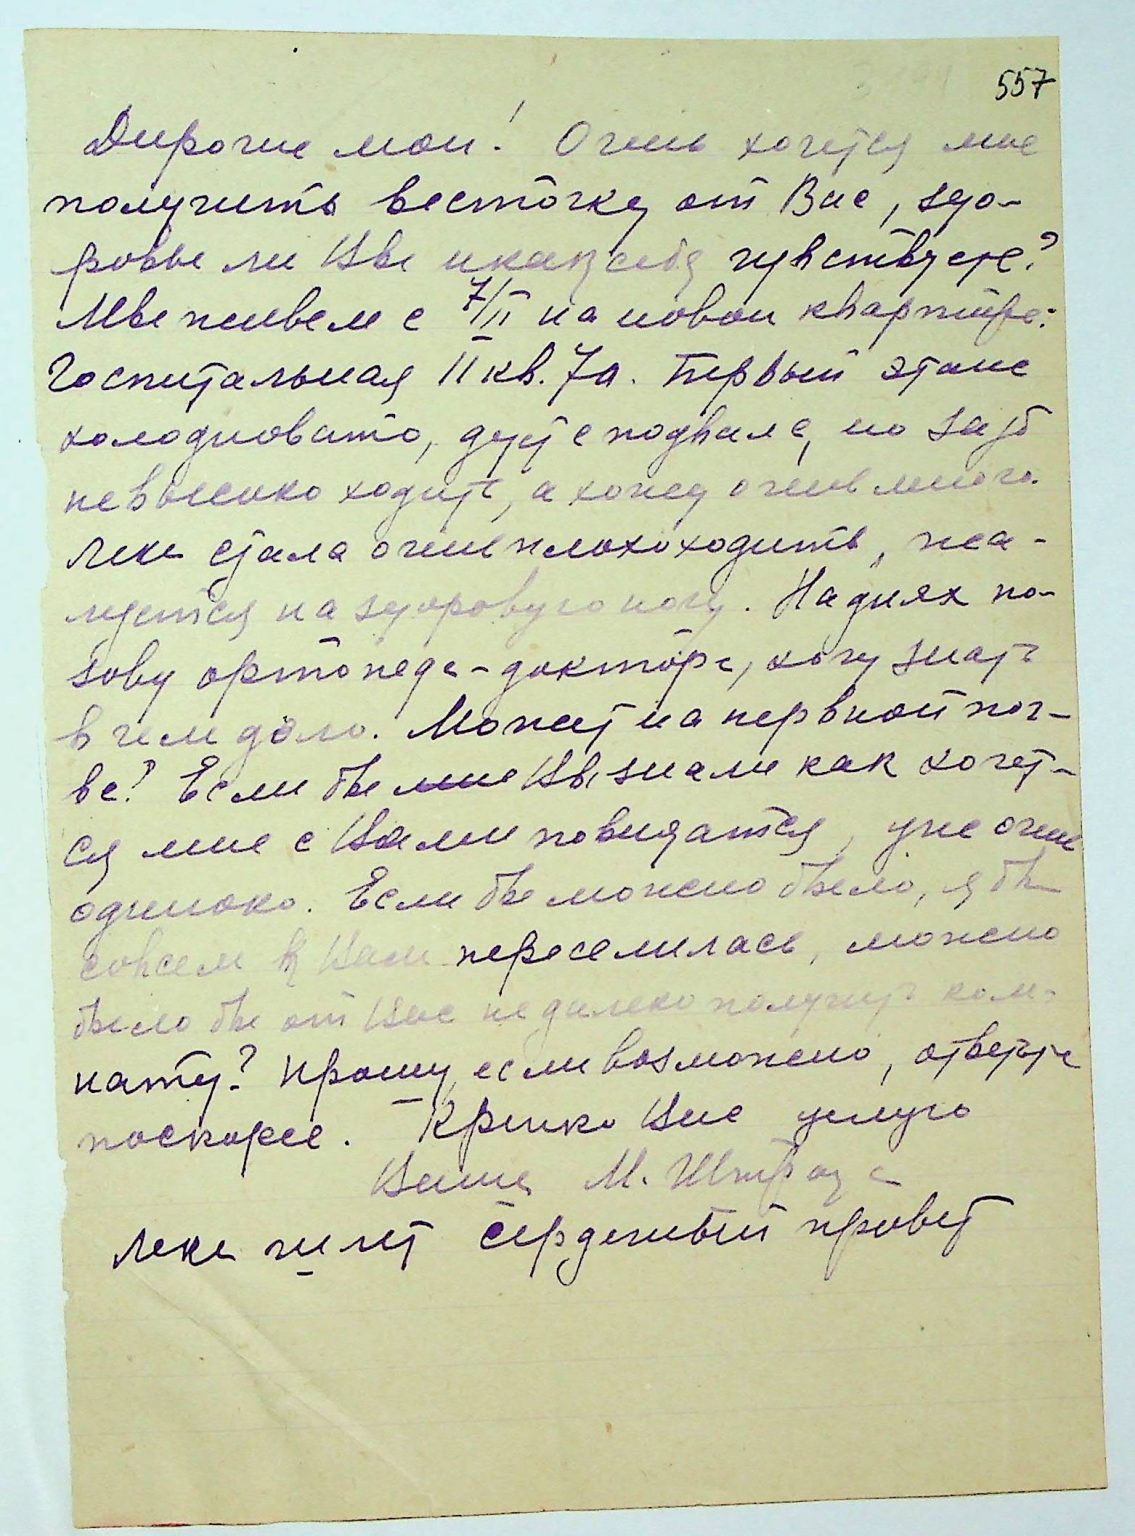 557
Дорогие мои! Очень хочется мне
получить весточку от Вас, здо-
ровы ли Вы и как себя чувствуете?
Мы живем с 7/II на новой квартире:
Госпитальная 11 кв. 7а. Первый этаж
холодновато, дует с подвала, но
не высоко ходить, а хожу очень много.
Лека стала очень плохо ходить, жа-
луется на здоровую ногу. На днях по-
зову ортопеда-доктора, хочу знать
в чем дело. Может на нервной поч-
ве? Если бы мне Вы знали как хочет-
ся мне с Вами повидаться, уже очень
одиноко. Если бы можно было, я бы
совсем к Вам переселилась, можно
было бы от Вас недалеко получить ком-
нату? Прошу, если возможно, ответьте
поскорее. Крепко Вас целую
Ваша М. Штраус
Лека шлет сердечный привет